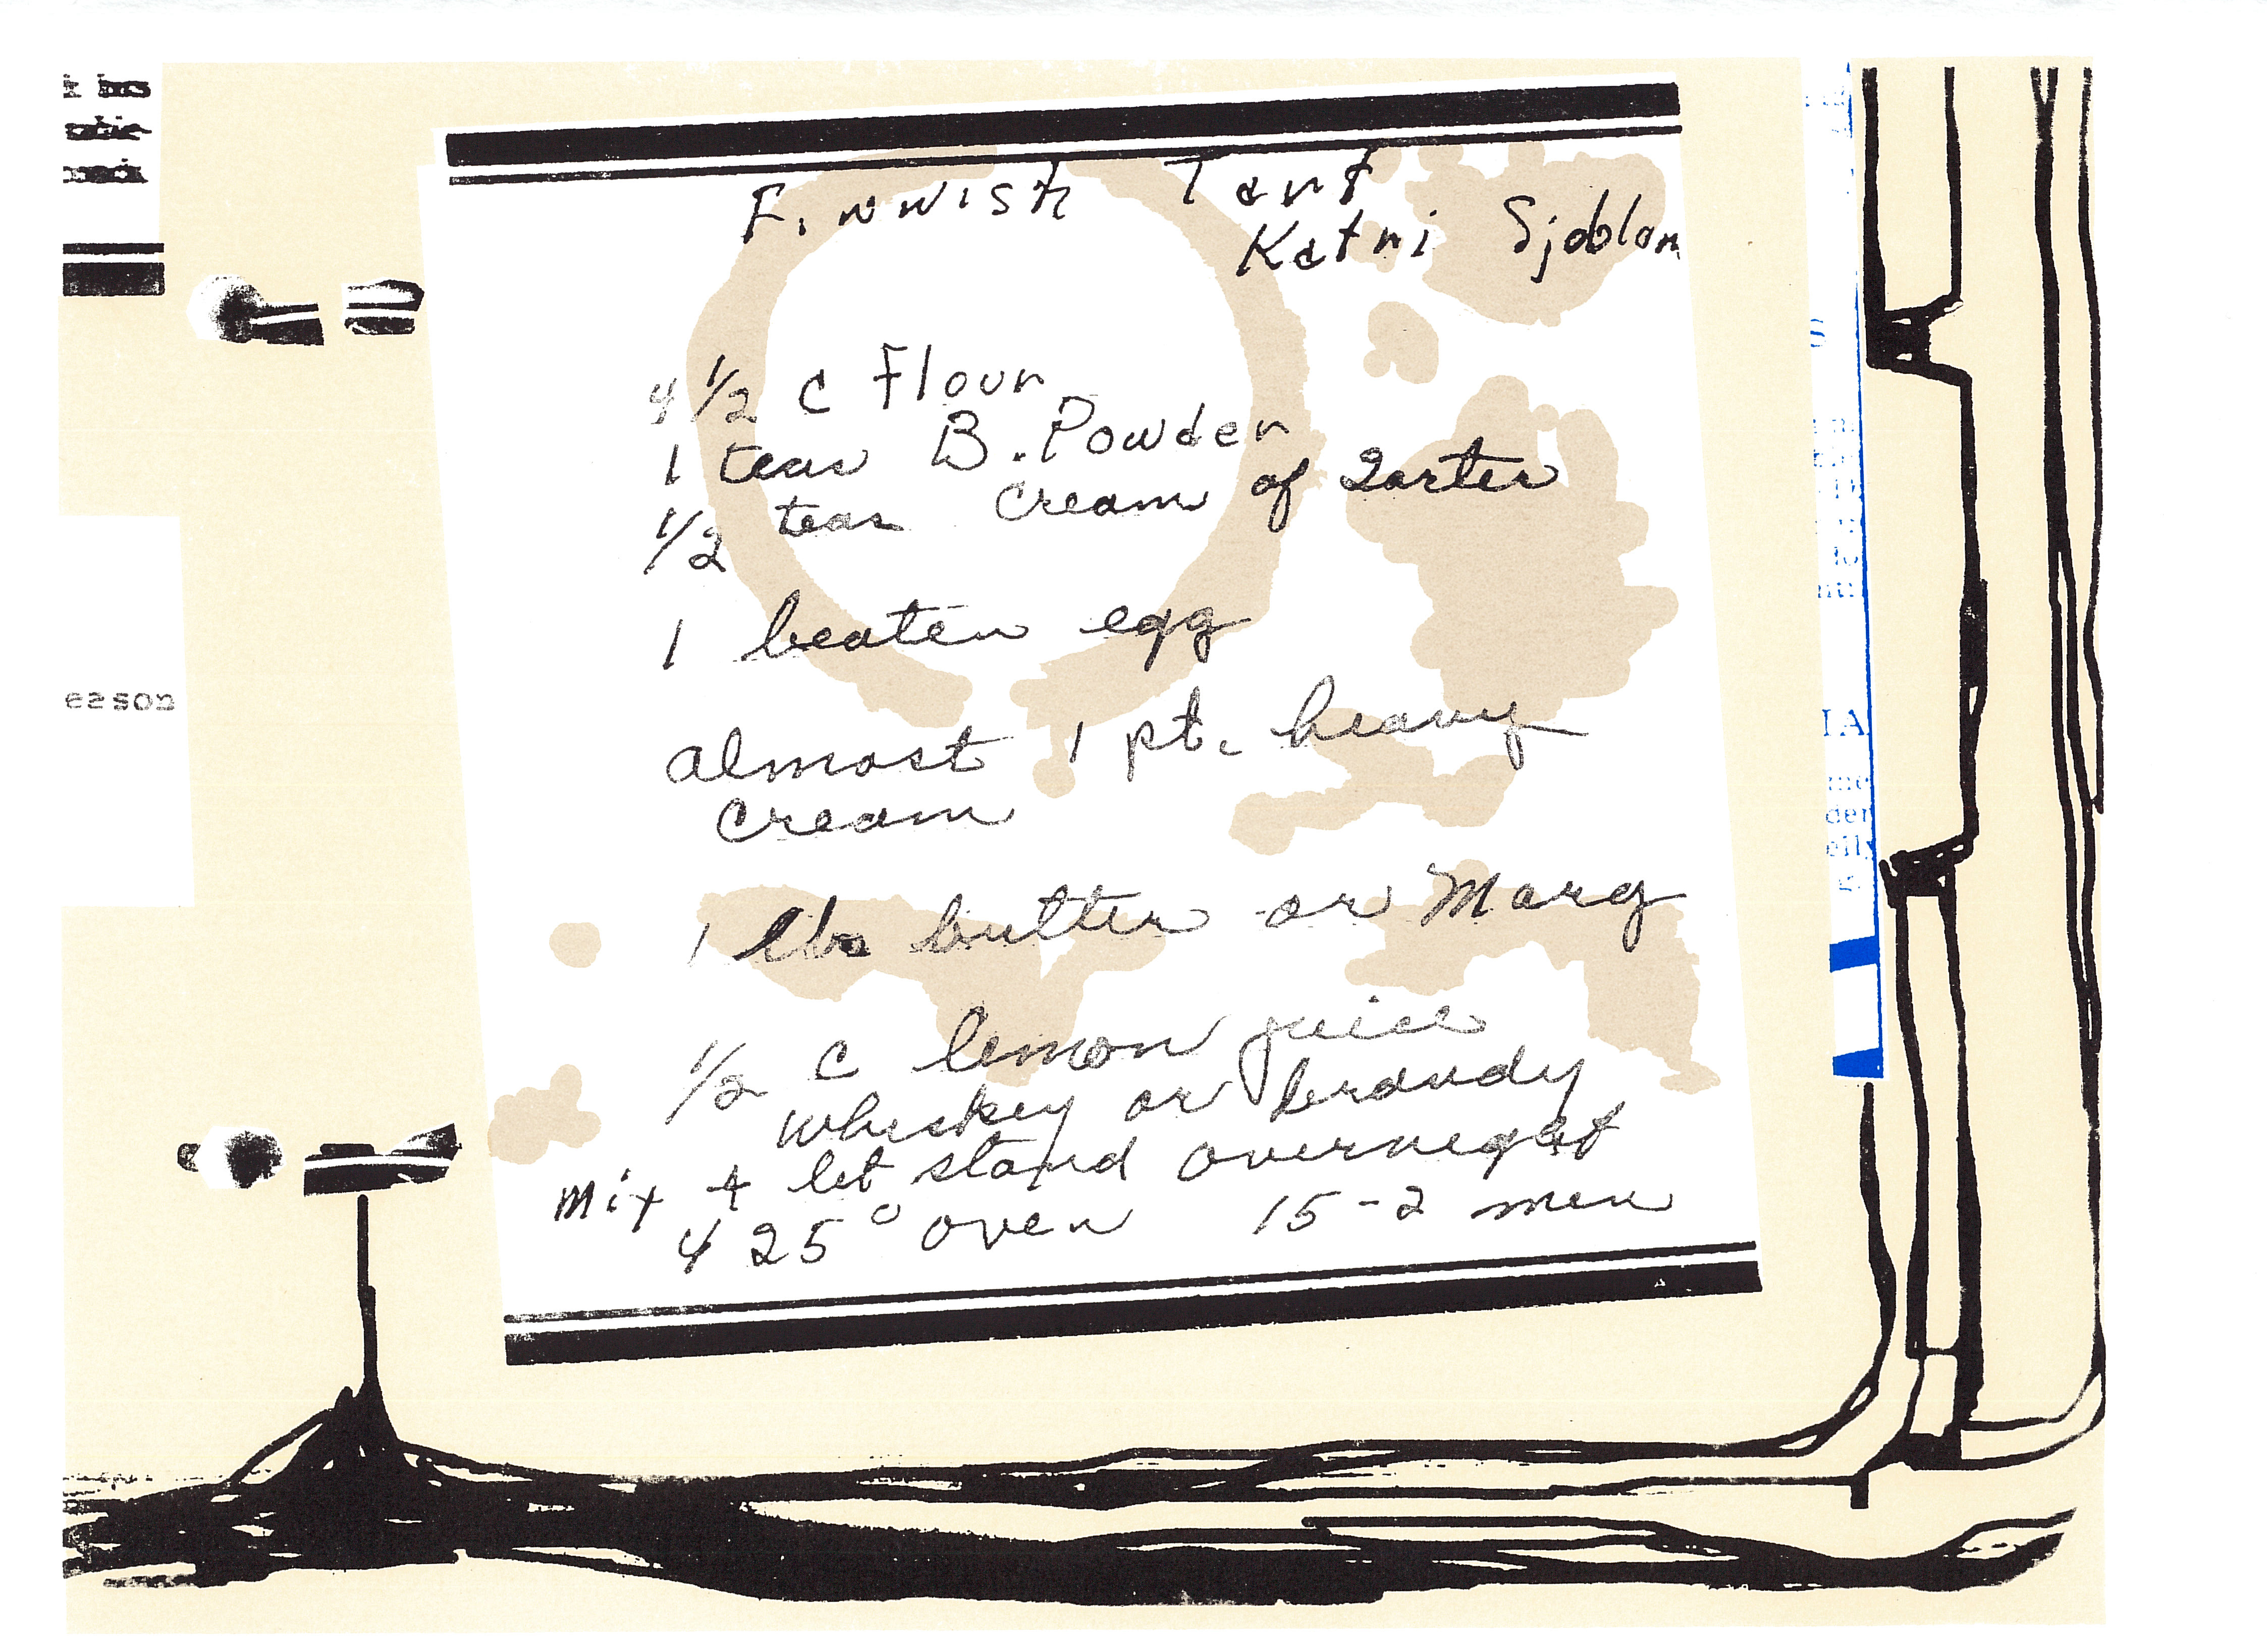 Finnish Tart
Katri Sjoblom
4 1/2 c Flour
1 teas B. Powder
1/2 teas cream of Tarter
1 beaten egg
almost 1 pt. heavy
cream
1 lb butter or Marg
1/2 c lemon juice
whiskey or brandy
Mix + let stand overnight
425° oven 15-2 min